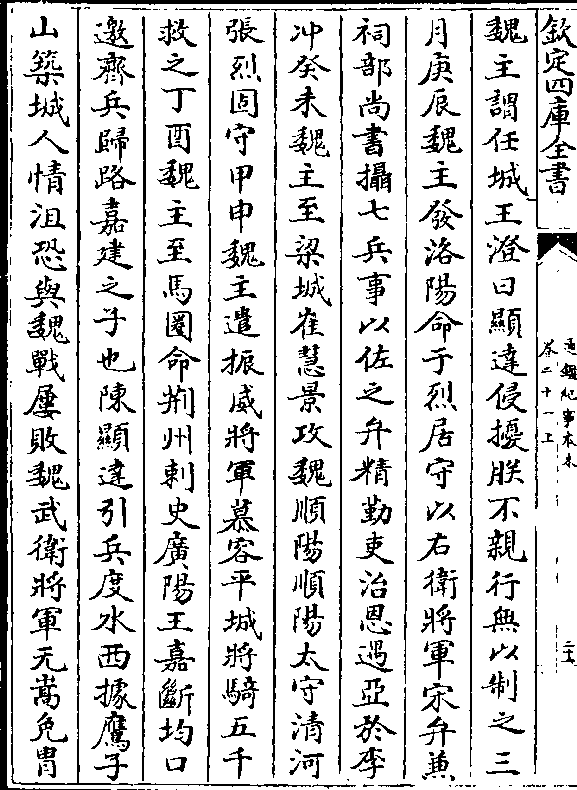 欽定四庫全書
通鑑紀事本末
卷二十一上
魏主謂任城王澄曰顯達侵擾朕不親行無以制之三
月庚辰魏主發洛陽命于烈居守以右衛將軍宋弁兼
祠部尚書攝七兵事以佐之弁精勤吏治恩遇亞於李
冲癸未魏主至梁城崔慧景攻魏順陽順陽太守清河
張烈固守甲申魏主遣振威將軍慕容平城將騎五千
救之丁酉魏主至馬圈命荆州刺史廣陽王嘉斷均口
邀齊兵歸路嘉建之子也陳顯達引兵度水西據鷹子
山築城人情沮恐與魏戰屢敗魏武衛將軍元嵩免胄